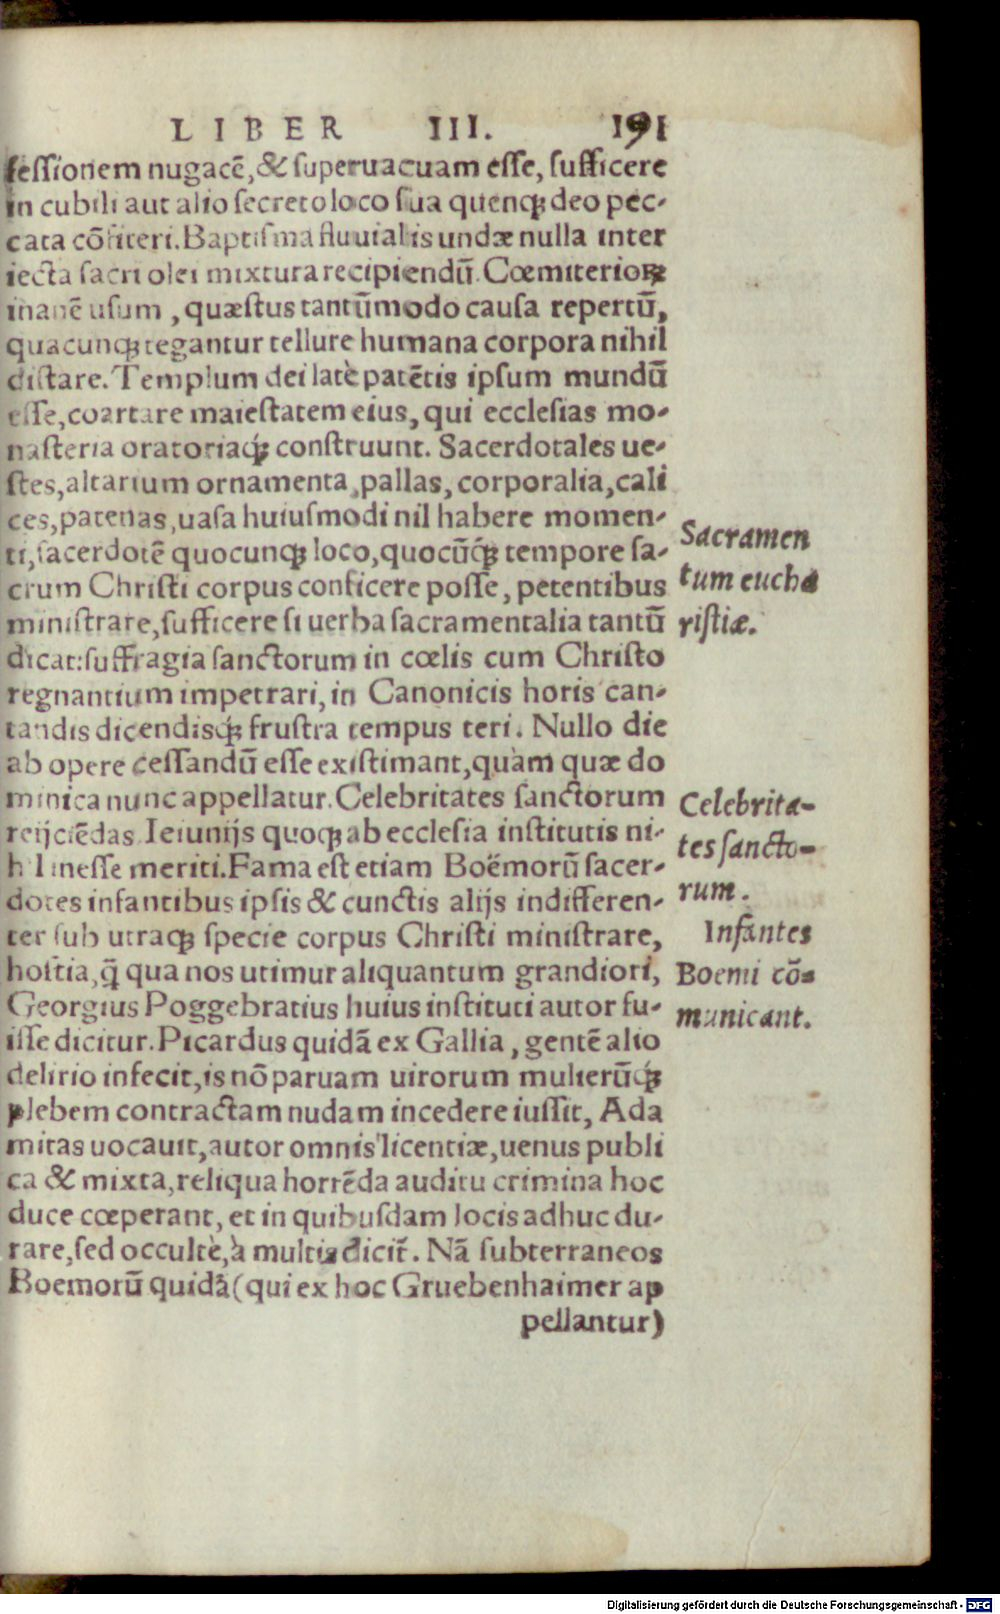 LIBER III. 191
fessionem nugacē, & superuacuam esse, sufficere
in cubili aut alio secreto loco sua quenq; deo pec-
cata cōfiteri. Baptisma fluuialis undæ nulla inter
iecta sacri olei mixtura recipiendū. Cœmiterioꝝ
inanē usum, quæstus tantūmodo causa repertū,
quacunq; tegantur tellure humana corpora nihil
distare. Templum dei latè patētis ipsum mundū
esse, coartare maiestatem eius, qui ecclesias mo-
nasteria oratoriaq́; construunt. Sacerdotales ue-
stes, altarium ornamenta, pallas, corporalia, cali
ces, patenas, uasa huiusmodi nil habere momen-
ti, sacerdotē quocunq; loco, quocūq́; tempore sa-
crum Christi corpus conficere posse, petentibus
ministrare, sufficere si uerba sacramentalia tantū
dicat: suffragia sanctorum in cœlis cum Christo
regnantium impetrari, in Canonicis horis can-
tandis dicendisq́; frustra tempus teri. Nullo die
ab opere cessandū esse existimant, quàm quæ do
minica nunc appellatur. Celebritates sanctorum
reijciēdas. Ieiunijs quoq; ab ecclesia institutis ni-
hil inesse meriti. Fama est etiam Boëmorū sacer-
dotes infantibus ipsis & cunctis alijs indifferen-
ter sub utraq; specie corpus Christi ministrare,
hostia, q̄ qua nos utimur aliquantum grandiori,
Georgius Poggebratius huius instituti autor fu-
isse dicitur. Picardus quidā ex Gallia, gentē alio
delirio infecit, is nō paruam uirorum mulierūq́;
plebem contractam nudam incedere iussit, Ada
mitas uocauit, autor omnis licentiæ, uenus publi
ca & mixta, reliqua horrēda auditu crimina hoc
duce cœperant, et in quibusdam locis adhuc du-
rare, sed occultè, à multis dicit̄. Nā subterraneos
Boemorū quidā (qui ex hoc Gruebenhaimer ap
pellantur)
Sacramen
tum eucha
ristiæ.
Celebrita-
tes sancto-
rum.
Infantes
Boemi cō-
municant.
Digitalisierung gefördert durch die Deutsche Forschungsgemeinschaft - DFG